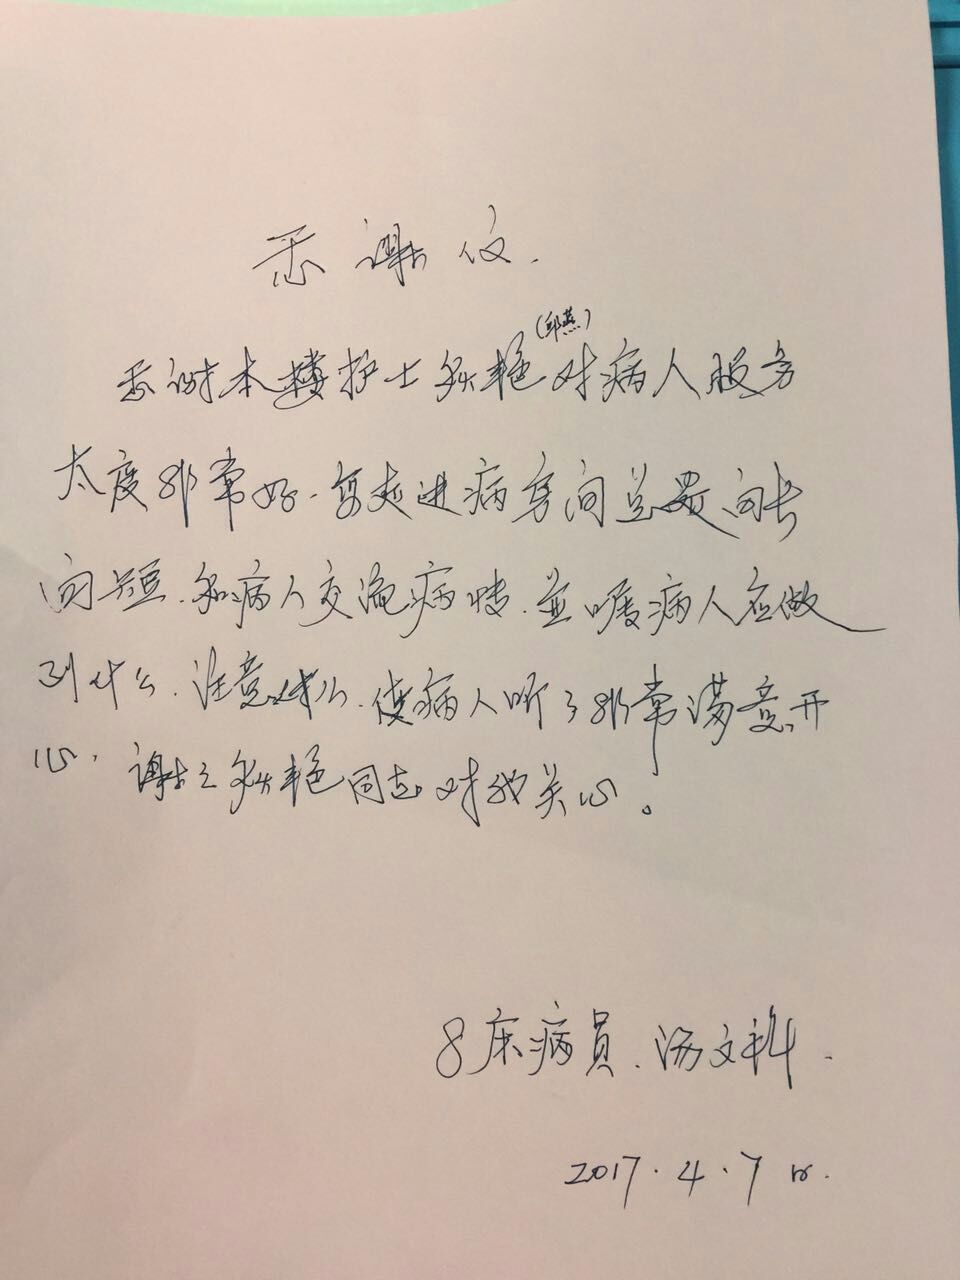 感谢信.
(邱燕)
感谢本楼护士 艳对病人服务
太度非常好. 走进病房间总是问长
问短.和病人交流病情.並嘱病人应做
到什么.注意什么.使病人听了非常满意开
心. 谢谢 艳同志对我关心。
8床病员.汤文科.
2017.4.7